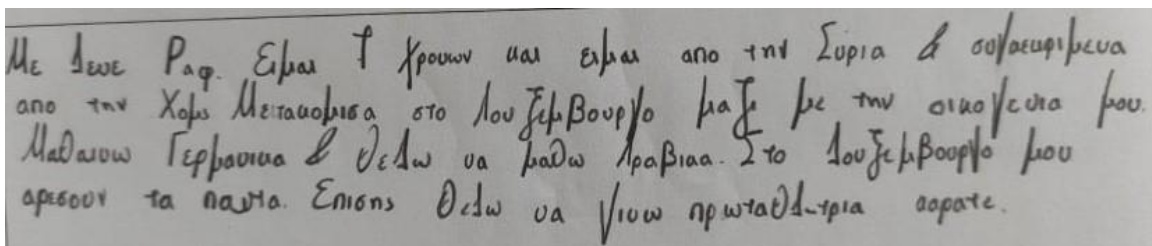 Με λενε Ραφ. Ειμαι 7 χρονων και ειμαι απο την Συρια & συγκεκριμενα
απο την Χομς Μετακομισα στο Λουξεμβουργο μαζι με την οικογενεια μου.
Μαθαινω Γερμανικα & θελω να μαθω Αραβικα. Στο Λουξεμβουργο μου
αρεσουν τα παντα. Επισης θελω να γινω πρωταθλητρια καρατε.